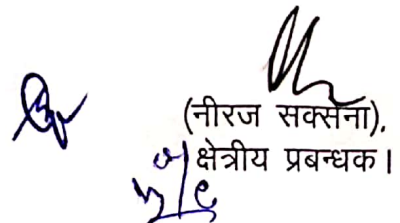 (नीरज सक्सेना),
क्षेत्रीय प्रबन्धक।